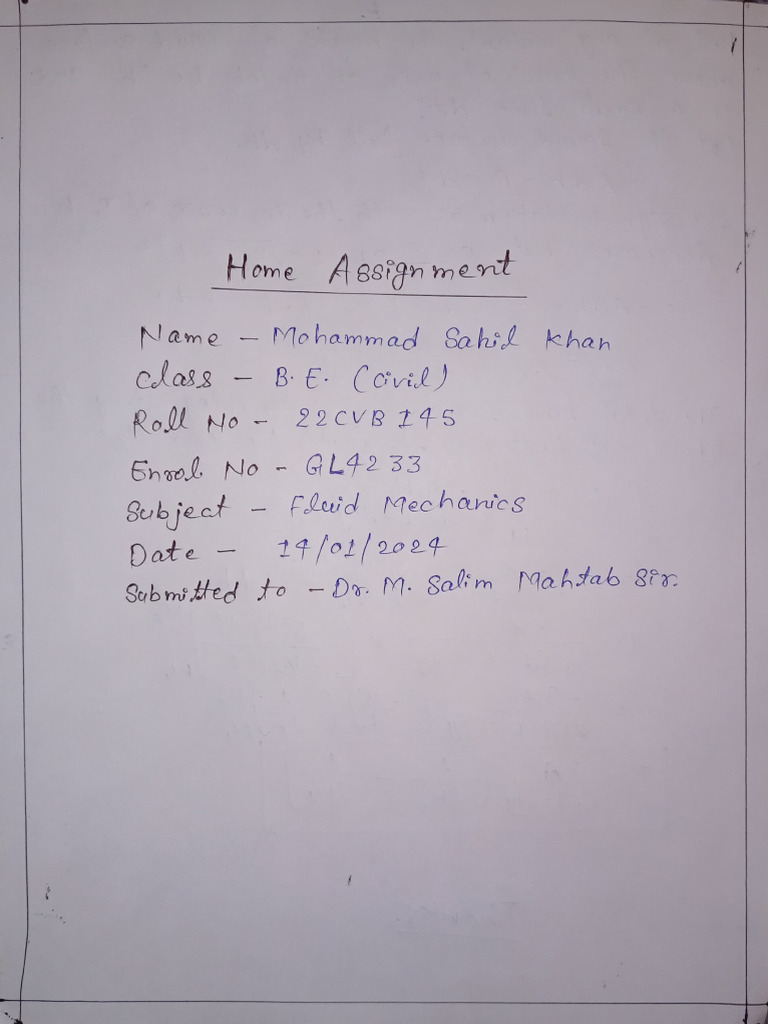 Home Assignment
Name - Mohammad Sahil Khan
Class - B.E. (Civil)
Roll No - 22CVB145
Enrol. No - GL4233
Subject - Fluid Mechanics
Date - 14/01/2024
Submitted to - Dr. M. Salim Mahtab Sir.